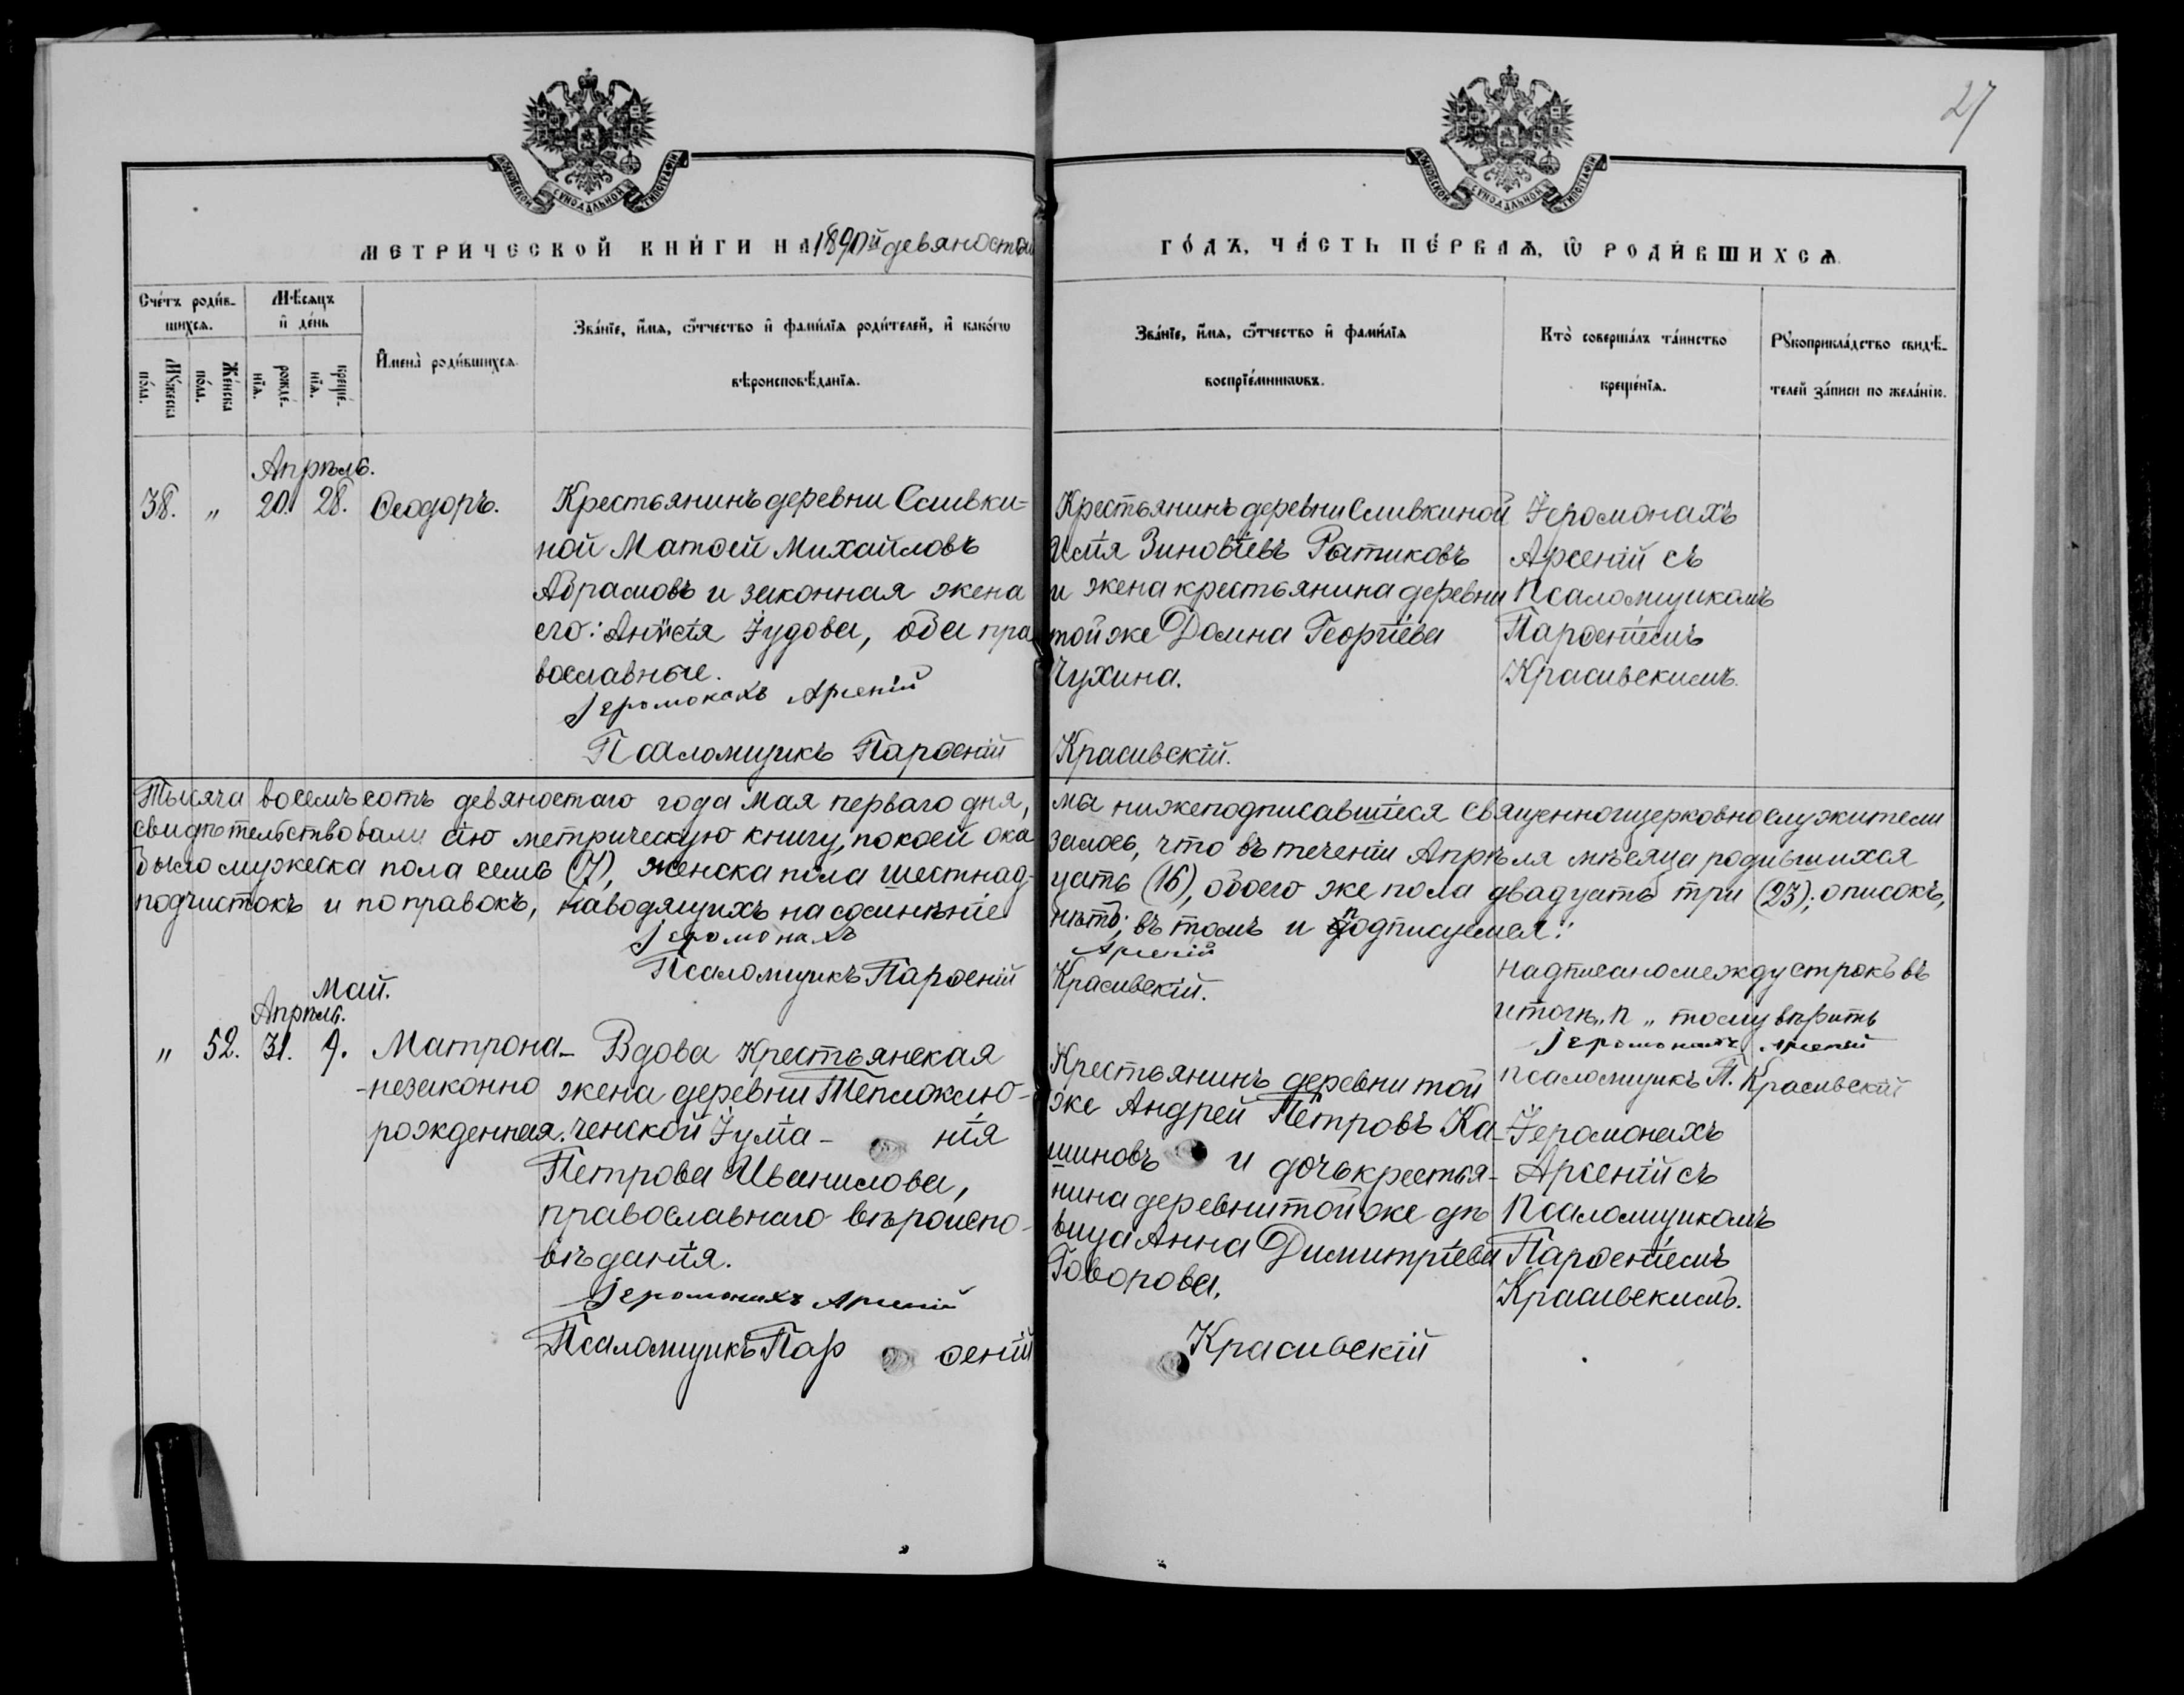 27
МОСКОВСКОЙ СѴНОДАЛЬНОЙ ТИПОГРАФІИ
МОСКОВСКОЙ СѴНОДАЛЬНОЙ ТИПОГРАФІИ
МЕТРИЧЕСКОЙ КНИГИ НА 1890й девяностый
ГОДЪ, ЧАСТЬ ПЕРВАѦ, Ѽ РОДИВШИХСѦ.
Счетъ родив-
шихсѧ.
Мѣсѧцъ
и день
Мꙋжеска
пола.
Женска
пола.
рожде-
нїѧ.
креще-
нїѧ.
Имена родившихсѧ.
Званїе, имѧ, ѻтчество и фамилїѧ родителей, и какогѡ
вѣроисповѣданїѧ.
Званїе, имѧ, ѻтчество и фамилїѧ
воспрїемникѡвъ.
Кто совершалъ таинство
крещенїѧ.
Рꙋкоприкладство свидѣ-
телей записи по желанїю.
Апрѣль.
38. „ 20. 28. Ѳеодоръ.
Крестьянинъ деревни Сливки=
ной Матѳей Михайловъ
Абрамовъ и законная жена
его: Анисія Іудова, оба пра
вославные.
Іеромонахъ Арсеній
Псаломщикъ Парѳеній
Крестьянинъ деревни Сливкиной
Илія Зиновіевъ Ротиковъ
и жена крестьянина деревни
той же Домна Георгіева
Чухина.
Красивскій.
Іеромонахъ
Арсеній съ
Псаломщикомъ
Парѳеніемъ
Красивскимъ.
Тысяча восемьсотъ девяностаго года Мая перваго дня,
мы нижеподписавшіеся Священноицерковнослужители
свидѣтельствовали сію метрическую книгу, по коей ока
залось, что въ теченіи Апрѣля мѣсяца родившихся
было мужеска пола семь (7), женска пола шестнад-
цать (16), обоего же пола двадцать три (23); описокъ,
подчистокъ и поправокъ, наводящихъ на сомнѣніе
нѣтъ; въ томъ и подписуемся:
Іеромонахъ
Арсеній
Псаломщикъ Парѳеній
Красивскій.
Надписано между строкъ въ
итогѣ „п„ тому вѣрить
Іеромонахъ Арсеній
псаломщикъ П. Красивскій
Май.
Апрѣль.
„ 52. 31. 9. Матрона-
-незаконно
рожденная.
Вдова Крестьянская
жена деревни Теплоклю-
ченской Іулiа- нія
Петрова Иванилова,
православнаго вѣроиспо-
вѣданія.
Іеромонахъ Арсеній
Псаломщикъ Пар ѳеній
Крестьянинъ деревни той
же Андрей Петровъ Ка-
шиновъ и дочь крестья-
нина деревни той же дѣ
вица Анна Димитріева
Говорова.
Красивскій
Іеромонахъ
Арсеній съ
Псаломщикомъ
Парѳеніемъ
Красивскимъ.